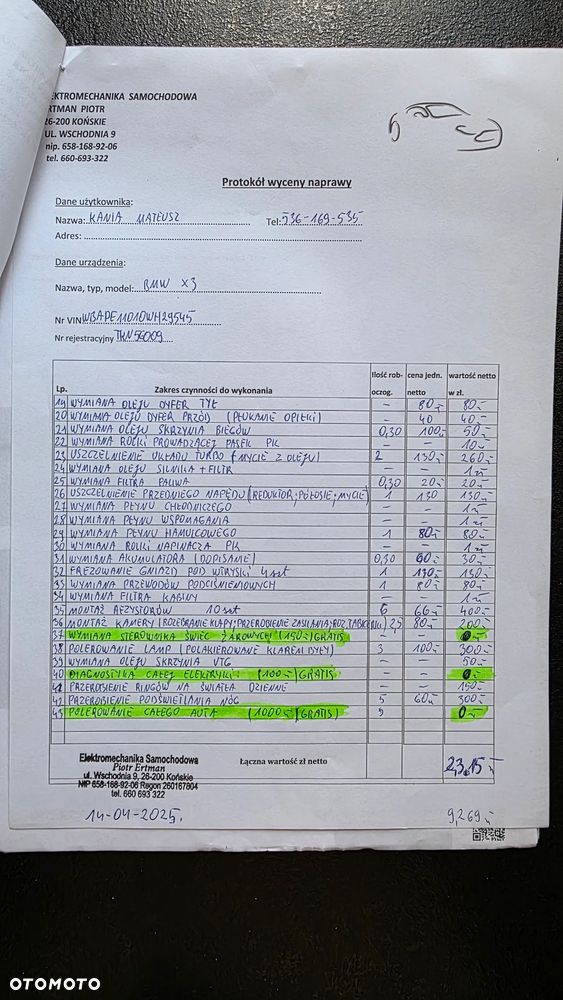 EKTROMECHANIKA SAMOCHODOWA
ERTMAN PIOTR
26-200 KOŃSKIE
UL. WSCHODNIA 9
nip. 658-168-92-06
tel. 660-693-322
Protokół wyceny naprawy
Dane użytkownika:
Nazwa: KANIA MATEUSZ Tel: 536-169-535
Adres:
Dane urządzenia:
Nazwa, typ, model: BMW X3
Nr VIN WBAPE11010WH29545
Nr rejestracyjny TKN56009
Lp. Zakres czynności do wykonania Ilość rob-oczog. cena jedn. netto wartość netto w zł.
19 WYMIANA OLEJU DYFER TYŁ - 80,- 80,-
20 WYMIANA OLEJU DYFER PRZÓD (PŁUKANIE OPIŁKI) 40 40,-
21 WYMIANA OLEJU SKRZYNIA BIEGÓW 0,30 100,- 50,-
22 WYMIANA ROLKI PROWADZĄCEJ PASEK PK - - 10,-
23 USZCZELNIENIE UKŁADU TURBO (MYCIE Z OLEJU) 2 130,- 260,-
24 WYMIANA OLEJU SILNIKA + FILTR - - 1zł
25 WYMIANA FILTRA PALIWA 0,30 20,- 20,-
26 USZCZELNIENIE PRZEDNIEGO NAPĘDU (REDUKTOR; PÓŁOSIE; MYCIE) 1 130 130,-
27 WYMIANA PŁYNU CHŁODNICZEGO - - 1zł
28 WYMIANA PŁYNU WSPOMAGANIA - - 1zł
29 WYMIANA PŁYNU HAMULCOWEGO 1 80,- 80,-
30 WYMIANA ROLKI NAPINACZA PK - - 1zł
31 WYMIANA AKUMULATORA (DOPISANIE) 0,30 60,- 30,-
32 FREZOWANIE GNIAZD POD WTRYSKI 4szt 1 130,- 130,-
33 WYMIANA PRZEWODÓW PODCIŚNIENIOWYCH 1 80 80,-
34 WYMIANA FILTRA KABINY - - 1zł
35 MONTAŻ REZYSTORÓW 10szt 6 66,- 400,-
36 MONTAŻ KAMERY (ROZEBRANIE KLAPY; PRZEROBIENIE ZASILANIA; 2,5 80,- 200,-
37 WYMIANA STEROWNIKA ŚWIEC ŻAROWYCH (150,-) GRATIS - - 0,-
38 POLEROWANIE LAMP (POLAKIEROWANE KLAREM DYFY) 3 100,- 300,-
39 WYMIANA OLEJU SKRZYNIA VTG - - 50,-
40 DIAGNOSTYKA CAŁEJ ELEKTRYKI (100,-) GRATIS - - 0,-
41 PRZEROBIENIE RINGÓW NA ŚWIATŁA DZIENNE - - 150,-
42 PRZEROBIENIE PODŚWIETLANIA NÓG 5 60,- 300,-
43 POLEROWANIE CAŁEGO AUTA (1000,-) GRATIS) 9 0,-
Łączna wartość zł netto 2315,-
Elektromechanika Samochodowa
Piotr Ertman
ul. Wschodnia 9, 26-200 Końskie
NIP 658-168-92-06 Regon 260167804
tel. 660 693 322
14-04-2025r.
9,269,-
OTOMOTO